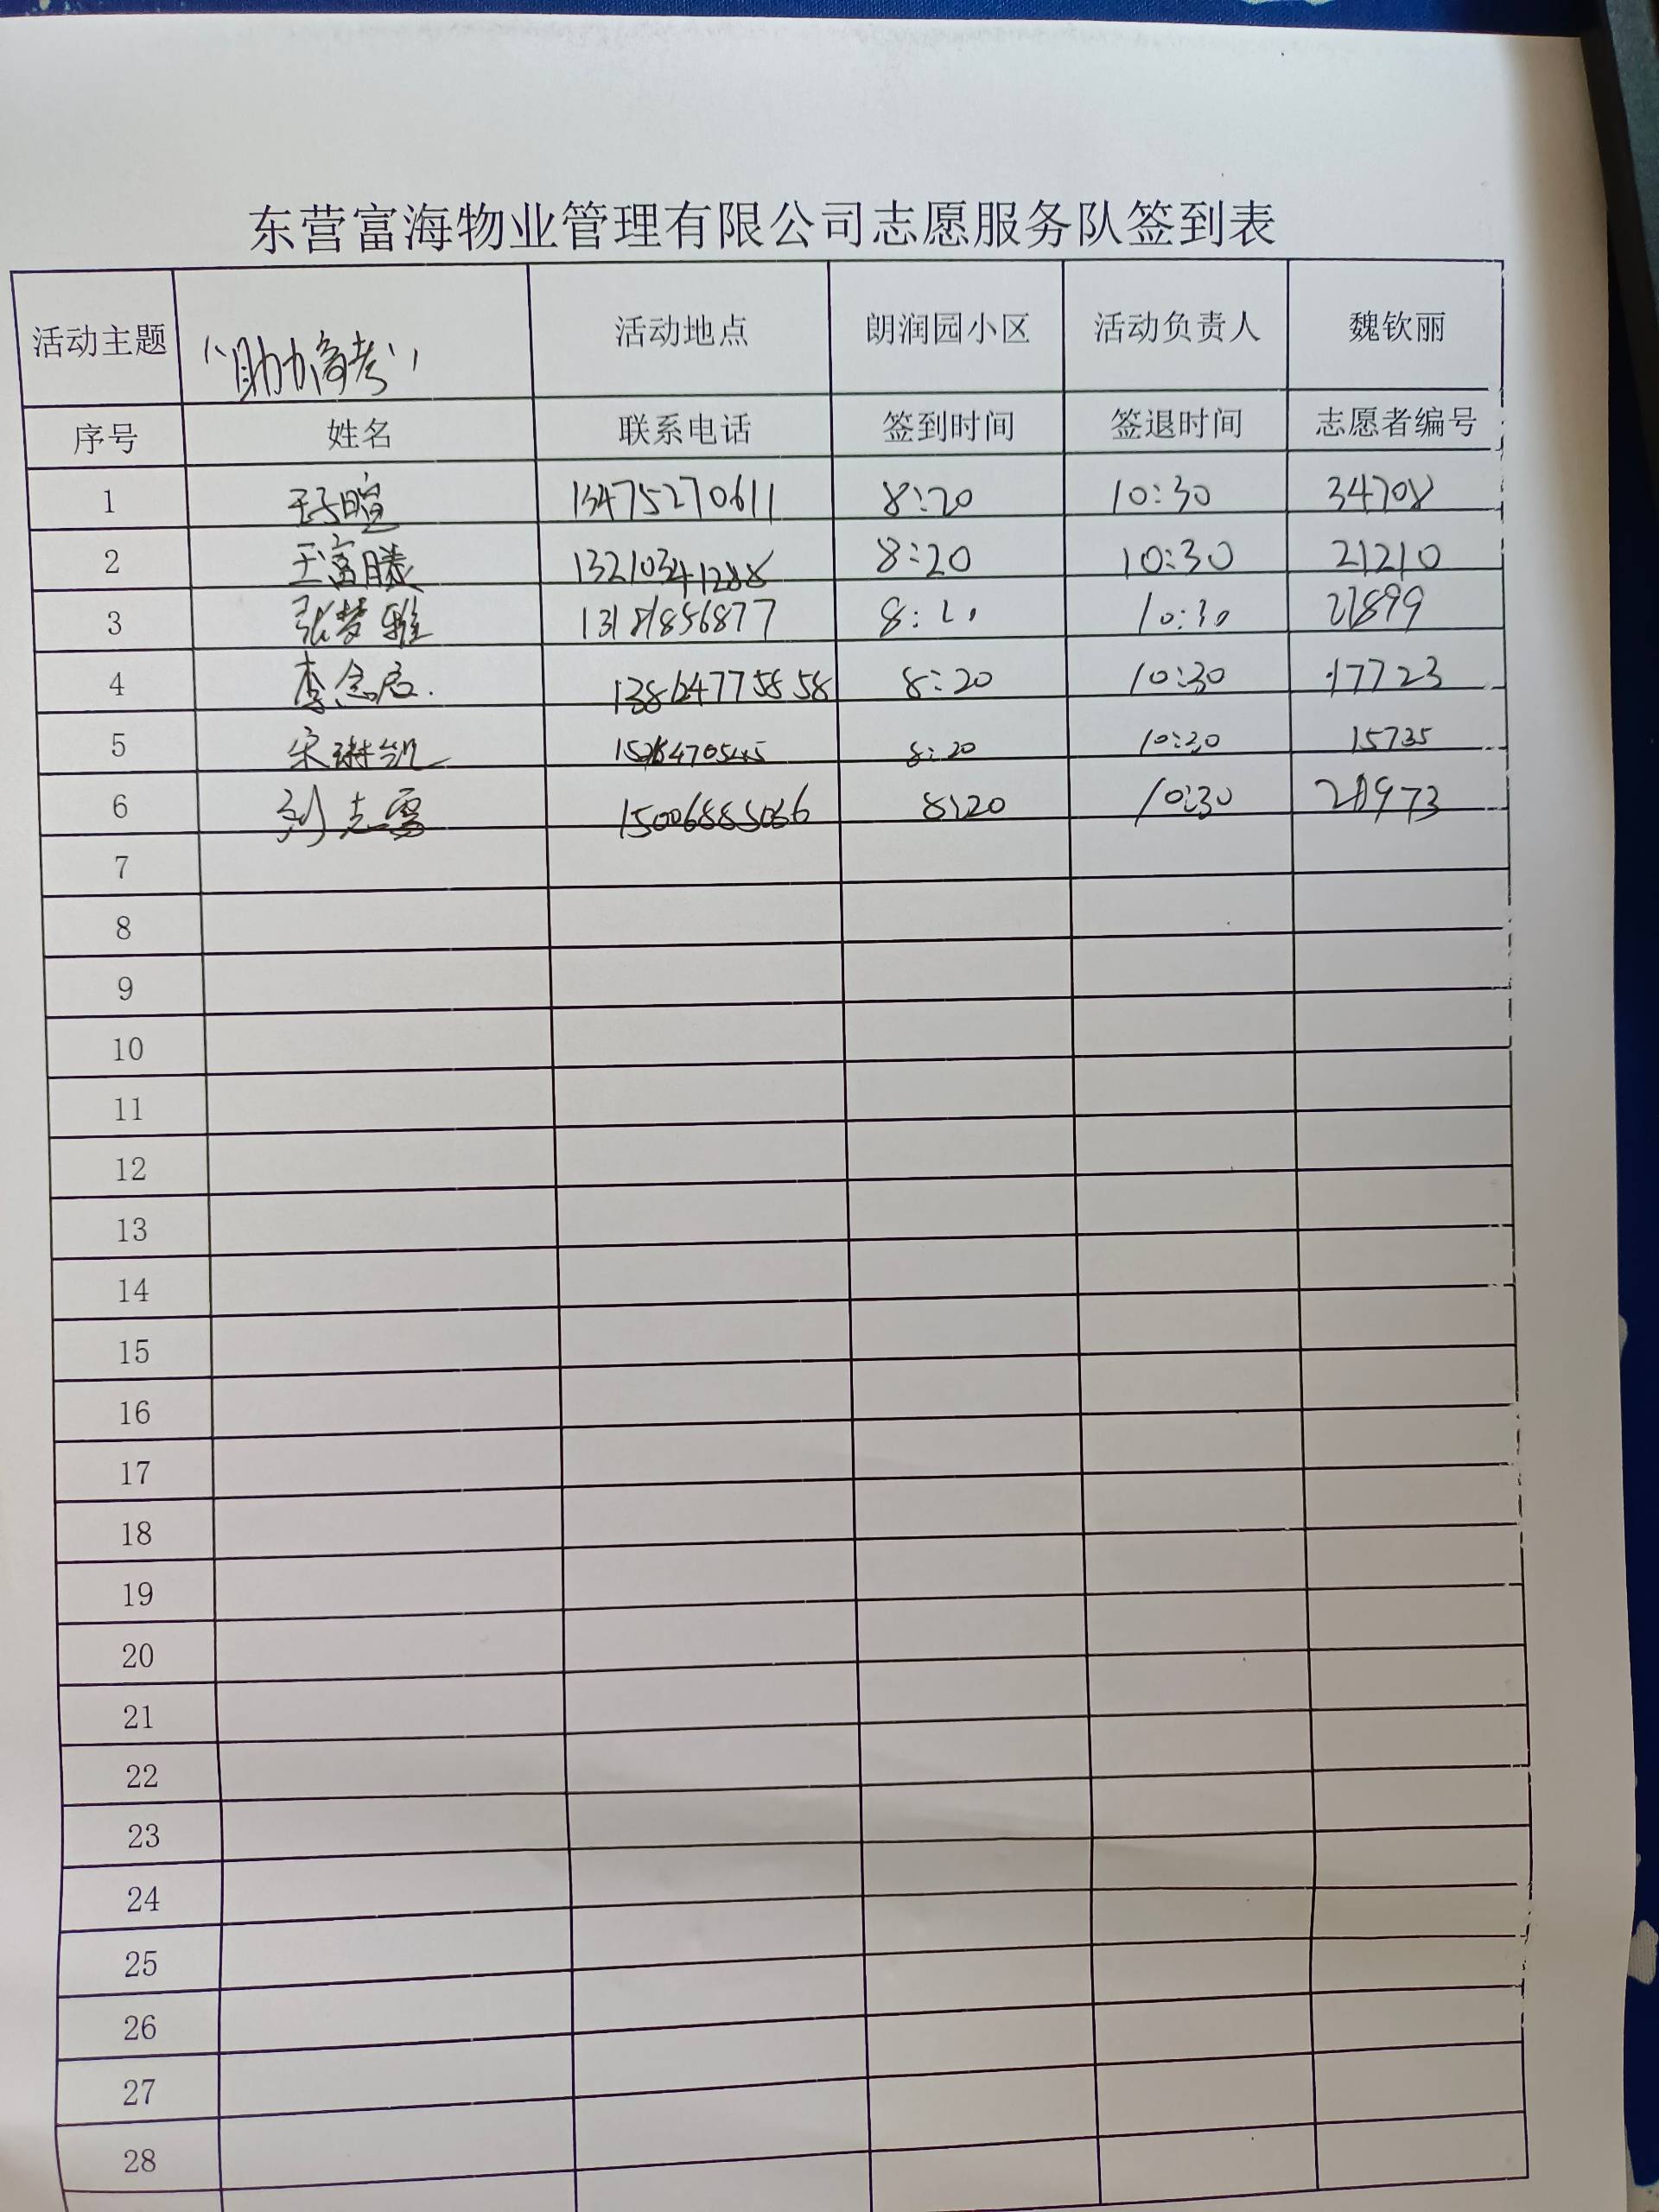 东营富海物业管理有限公司志愿服务队签到表
活动主题 "助力高考" 活动地点 朗润园小区 活动负责人 魏钦丽
序号 姓名 联系电话 签到时间 签退时间 志愿者编号
1 王子暄 13475270611 8:20 10:30 34708
2 王富滕 13210341288 8:20 10:30 21210
3 张梦雅 13181856877 8:20 10:30 21899
4 李念启 13864775858 8:20 10:30 17723
5 宋琳凯 8:20 10:30 15735
6 刘志雪 15006883086 8:20 10:30 20973
7
8
9
10
11
12
13
14
15
16
17
18
19
20
21
22
23
24
25
26
27
28